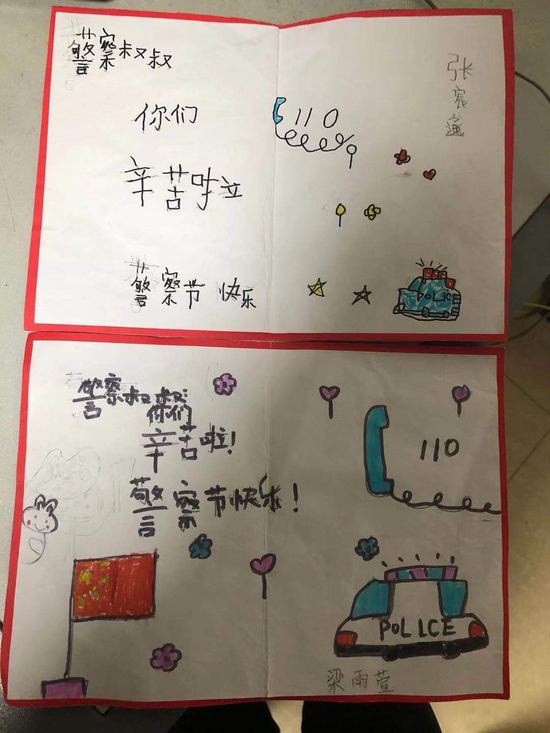 警察叔叔
你们
辛苦啦
警察节 快乐
110
张宸
POLICE
警察叔叔
你们
辛苦啦!
警察节快乐!
110
POLICE
梁雨萱